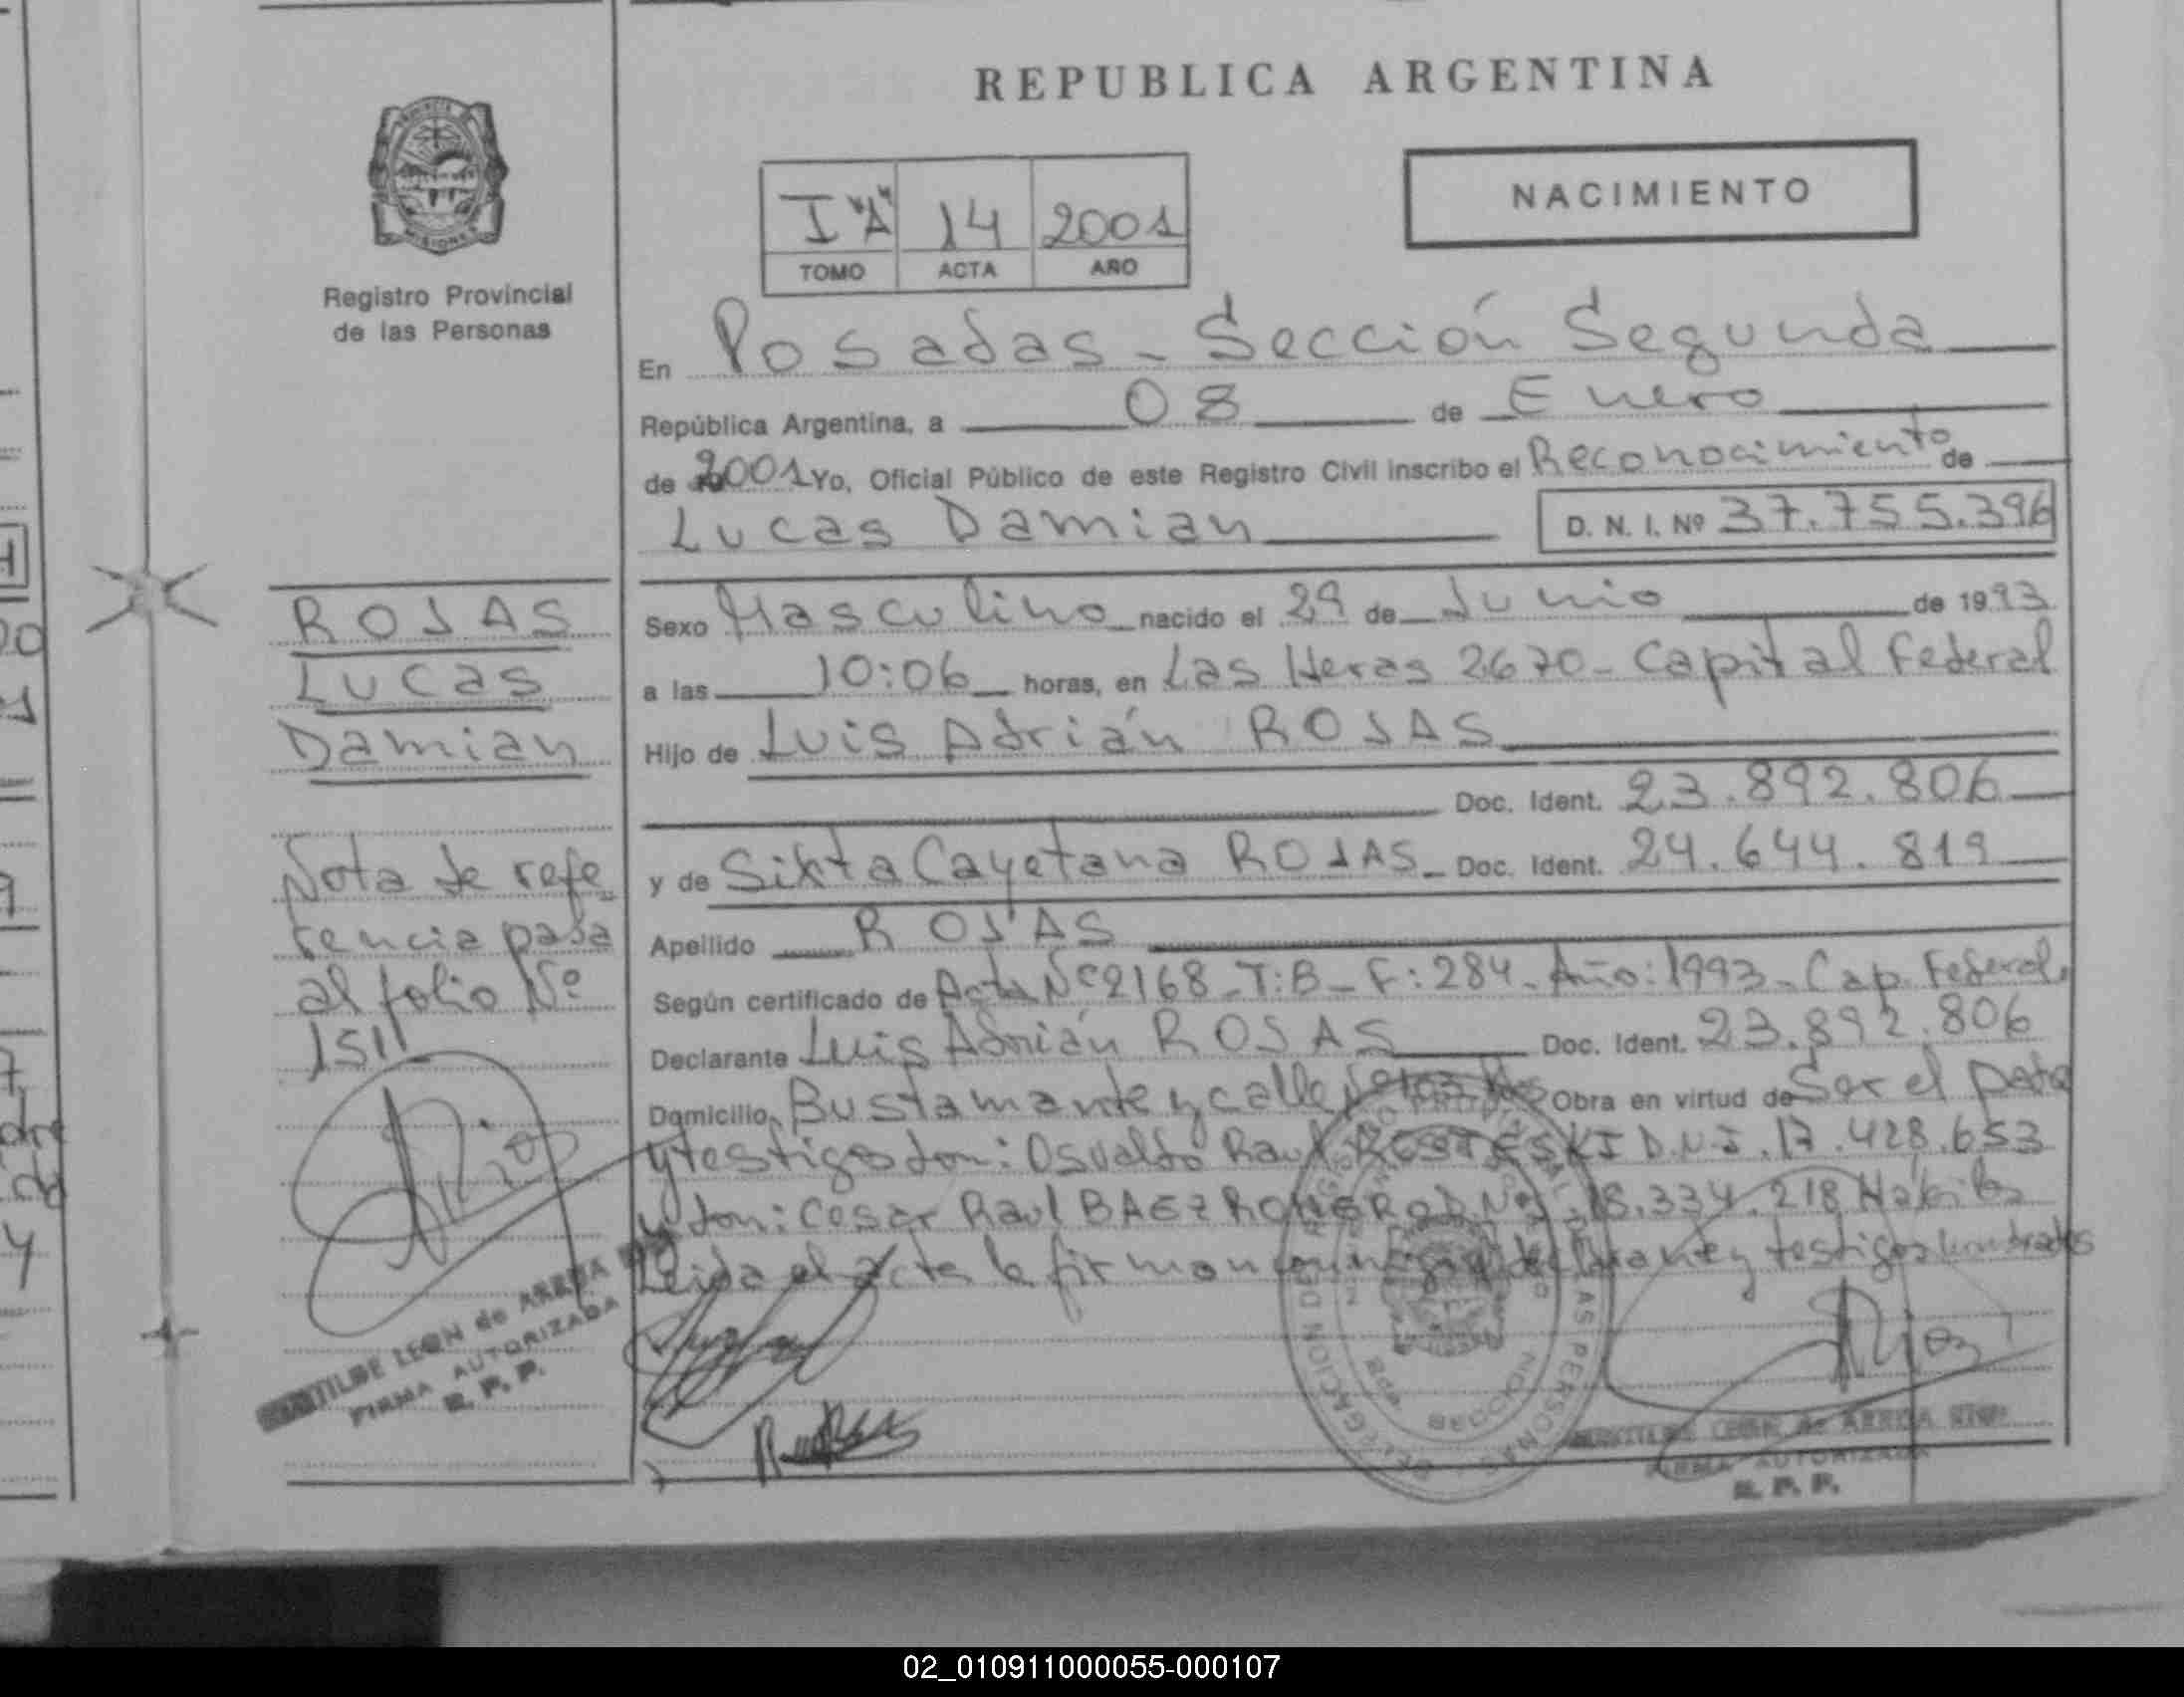 REPUBLICA ARGENTINA
NACIMIENTO
I "A" 14 2001
TOMO ACTA AÑO
MISIONES
Registro Provincial
de las Personas
En Posadas - Sección Segunda
República Argentina, a 08 de Enero
de 2001 Yo, Oficial Público de este Registro Civil inscribo el Reconocimiento de
Lucas Damian D. N. I. Nº 37.755.396
ROJAS
Lucas
Damian
Nota de refe
rencia pasa
al folio Nº
Sexo Masculino nacido el 29 de Junio de 1993
a las 10:06 horas, en Las Heras 2670 - Capital Federal
Hijo de Luis Adrián ROJAS
Doc. Ident. 23.892.806
y de Sixta Cayetana ROJAS - Doc. Ident. 24.644.819
Apellido ROJAS
Según certificado de Acta Nº 2168 - T: B - F: 284 - Año: 1993 - Cap. Federal
Declarante Luis Adrián ROJAS Doc. Ident. 23.892.806
Domicilio Bustamante y calle Obra en virtud de Ser el padre
y testigos don: Osvaldo Raul D.N.I. 17.428.653
y don: Cesar Raul BAEZ ROMERO D.N.I. 18.334.218 Hábiles
Leida el acta la firman conmigo el declarante y testigos nombrados
MATILDE LEON de ARRUA
FIRMA AUTORIZADA
R. P. P.
LEON de ARRUA
FIRMA AUTORIZADA
R. P. P.
02_010911000055-000107